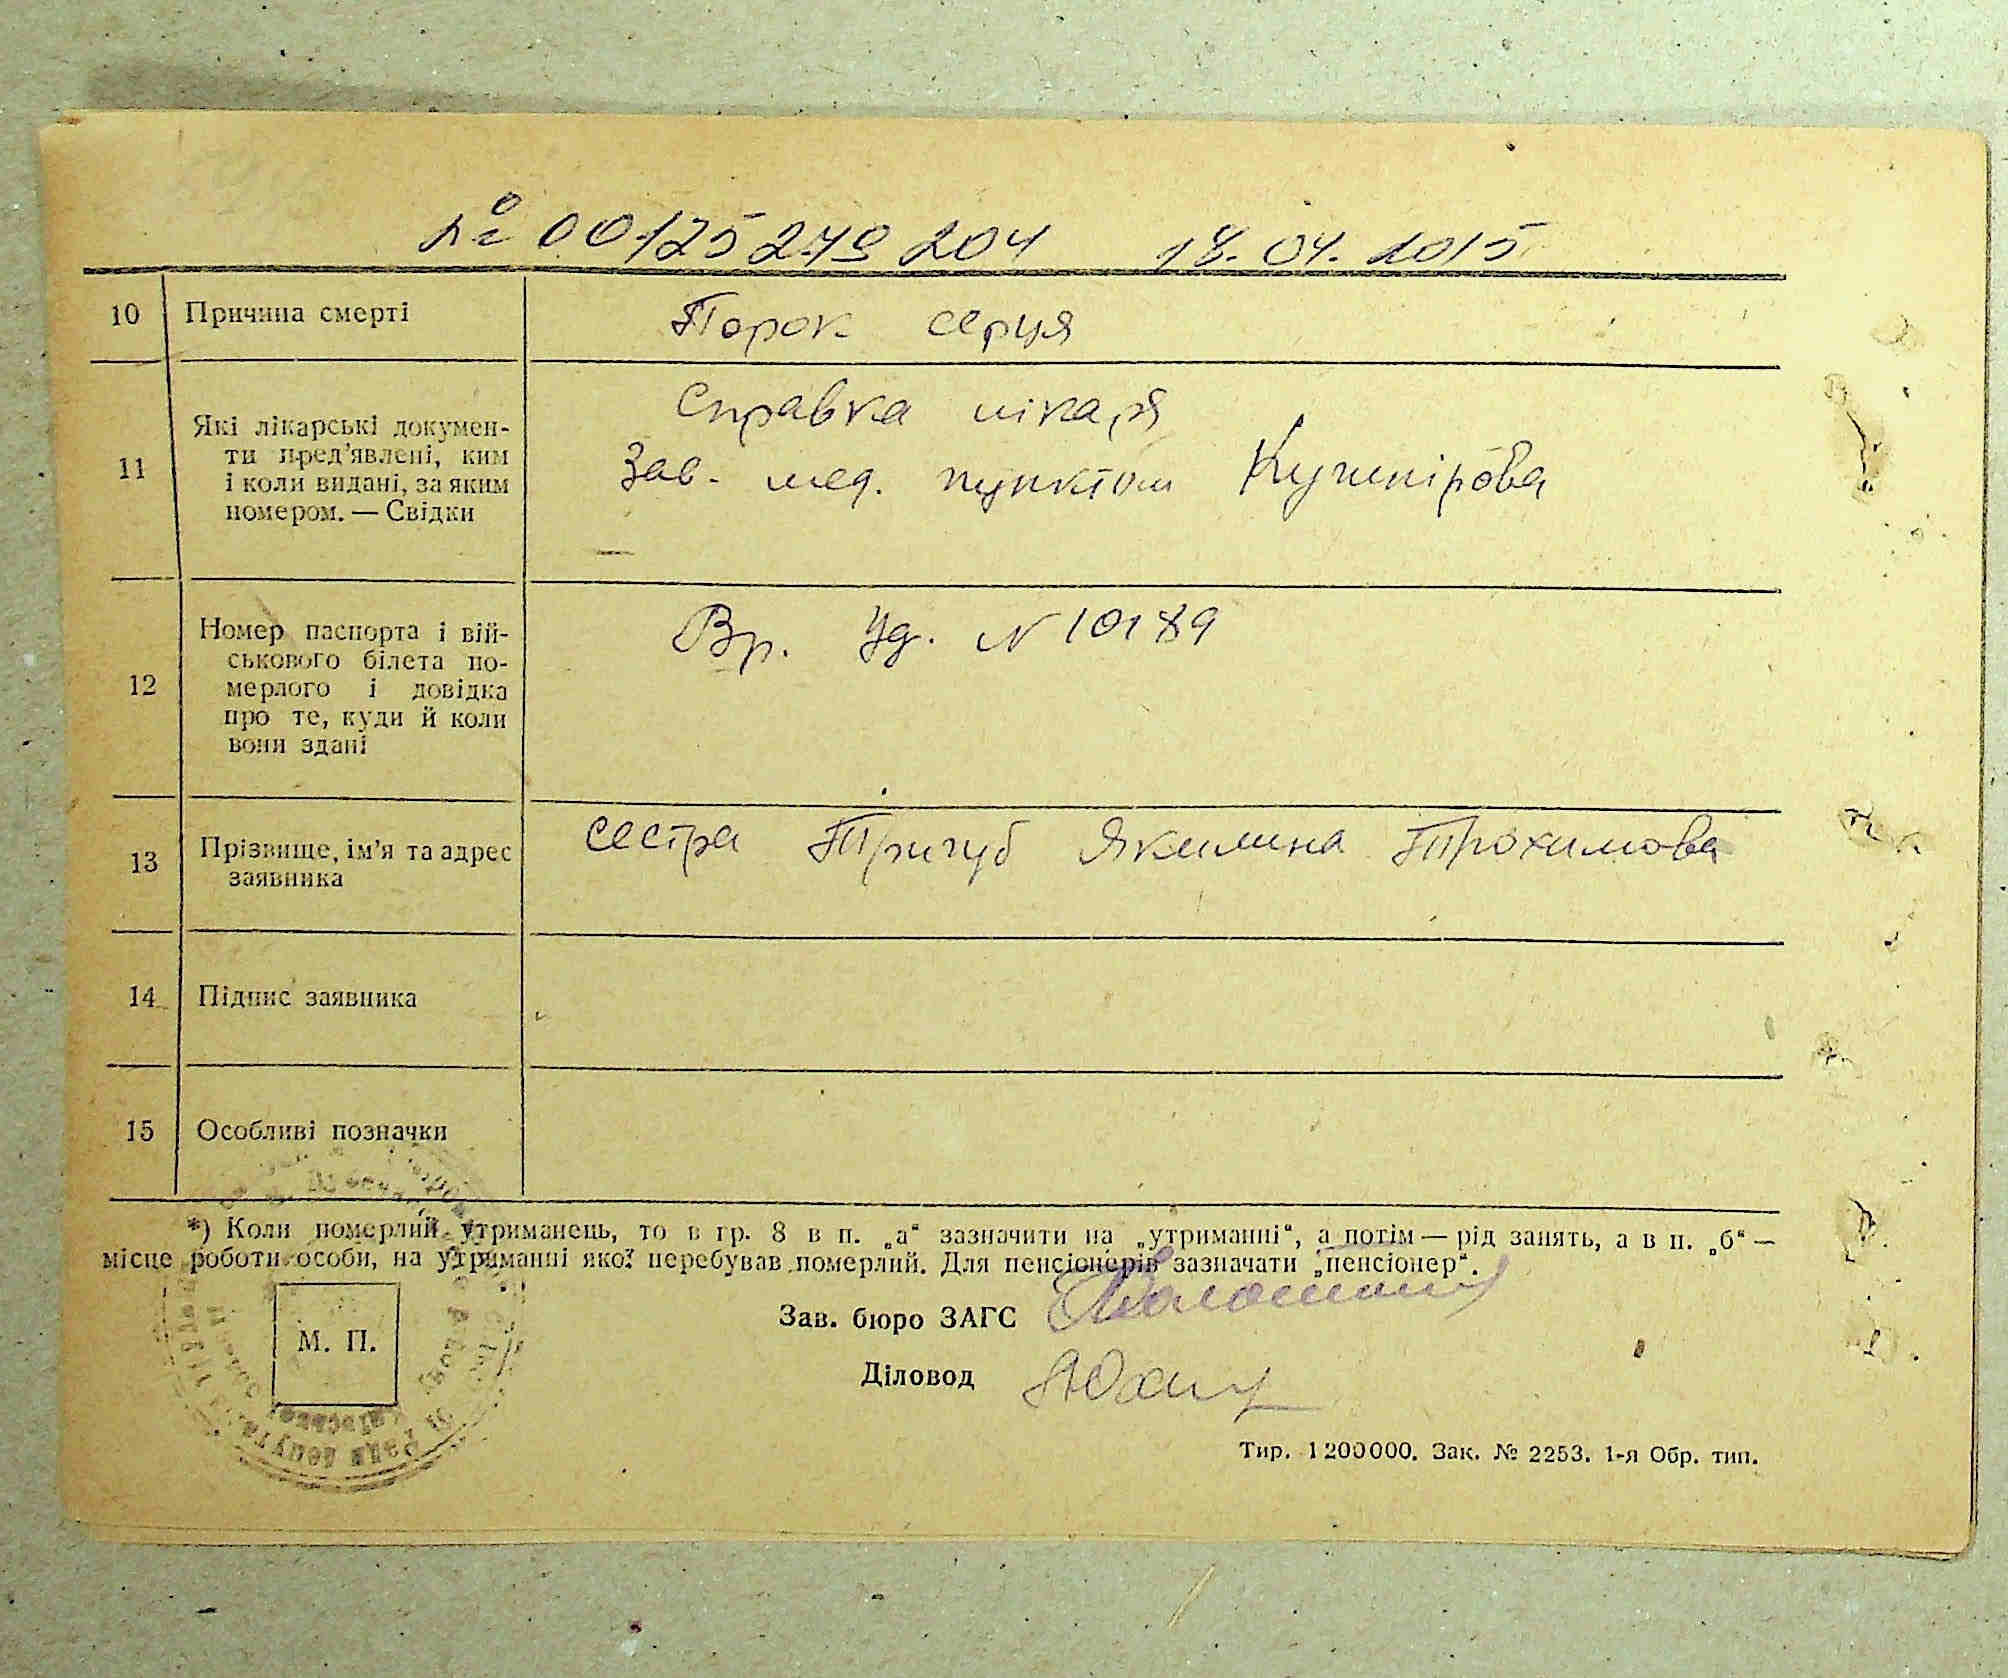 № 00125279204 18.04.2015
10 Причина смерті Порок серця
11 Які лікарські докумен-
ти пред’явлені, ким
і коли видані, за яким
номером. — Свідки
Справка лікаря
Зав. мед. пунктом Кушнірова
12 Номер паспорта і вій-
ськового білета по-
мерлого і довідка
про те, куди й коли
вони здані
Вр. Уд. N 10189
13 Прізвище, ім’я та адрес
заявника
сестра Тригуб Якилина Трохимова
14 Підпис заявника
15 Особливі позначки
*) Коли померлий утриманець, то в гр. 8 в п. „а“ зазначити на „утриманні“, а потім — рід занять, а в п. „б“ —
місце роботи особи, на утриманні якої перебував померлий. Для пенсіонерів зазначати „пенсіонер“.
Зав. бюро ЗАГС
М. П.
Діловод
Тир. 1200000. Зак. № 2253. 1-я Обр. тип.